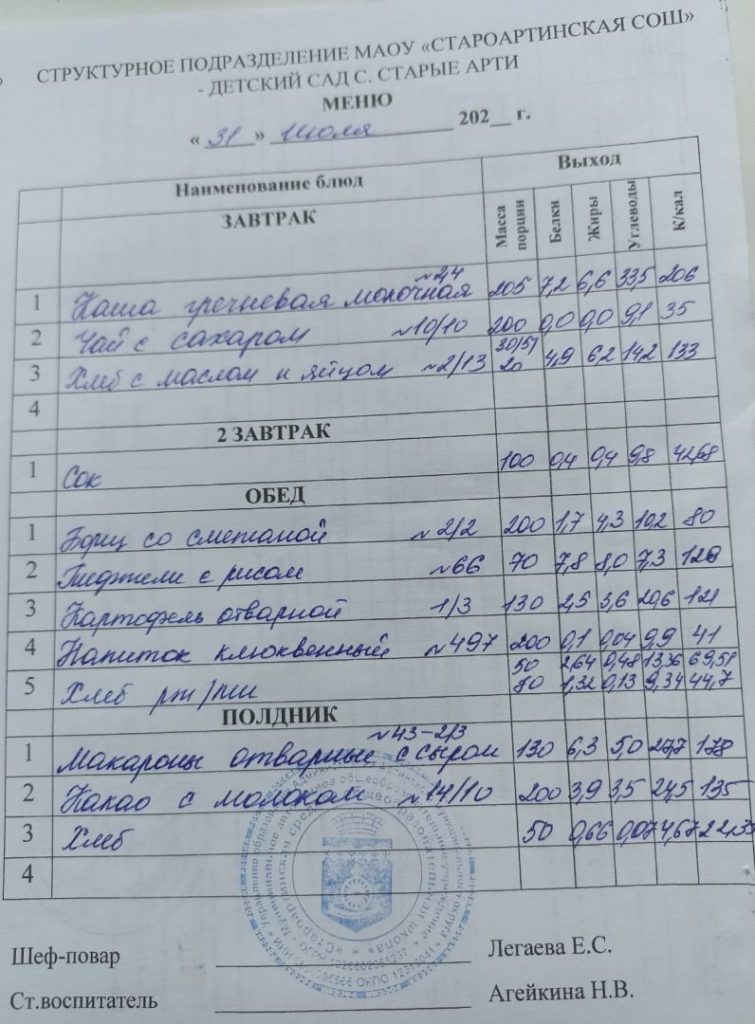 СТРУКТУРНОЕ ПОДРАЗДЕЛЕНИЕ МАОУ «СТАРОАРТИНСКАЯ СОШ»
- ДЕТСКИЙ САД С. СТАРЫЕ АРТИ
МЕНЮ
« 31 » Июля 202__ г.
Наименование блюд Выход
ЗАВТРАК Масса порции Белки Жиры Углеводы К/кал
1 Каша гречневая молочная 205 7,2 6,6 33,5 206
2 Чай с сахаром №10/10 200 0,0 0,0 9,1 35
3 Хлеб с маслом и яйцом №2/13 20 4,9 6,2 14,2 133
4
2 ЗАВТРАК
1 Сок 100 0,4 0,4 9,8 42,68
ОБЕД
1 Борщ со сметаной №2/2 200 1,7 4,3 10,2 80
2 с рисом №66 70 7,8 8,0 7,3
3 Картофель отварной 1/3 130 2,5 3,6 20,6 121
4 Напиток клюквенный №497 200 0,1 0,04 9,9 41
5 Хлеб рж/пш 50 2,64 0,48 13,36 69,51
1,32 0,13 9,34 44,7
ПОЛДНИК
№43-2/3
1 Макароны отварные с сыром 130 6,3 5,0 27,7 178
2 Какао с молоком №14/10 200 3,9 3,5 24,5 135
3 Хлеб 50 0,66 0,07 4,67
4
Шеф-повар Легаева Е.С.
Ст.воспитатель Агейкина Н.В.